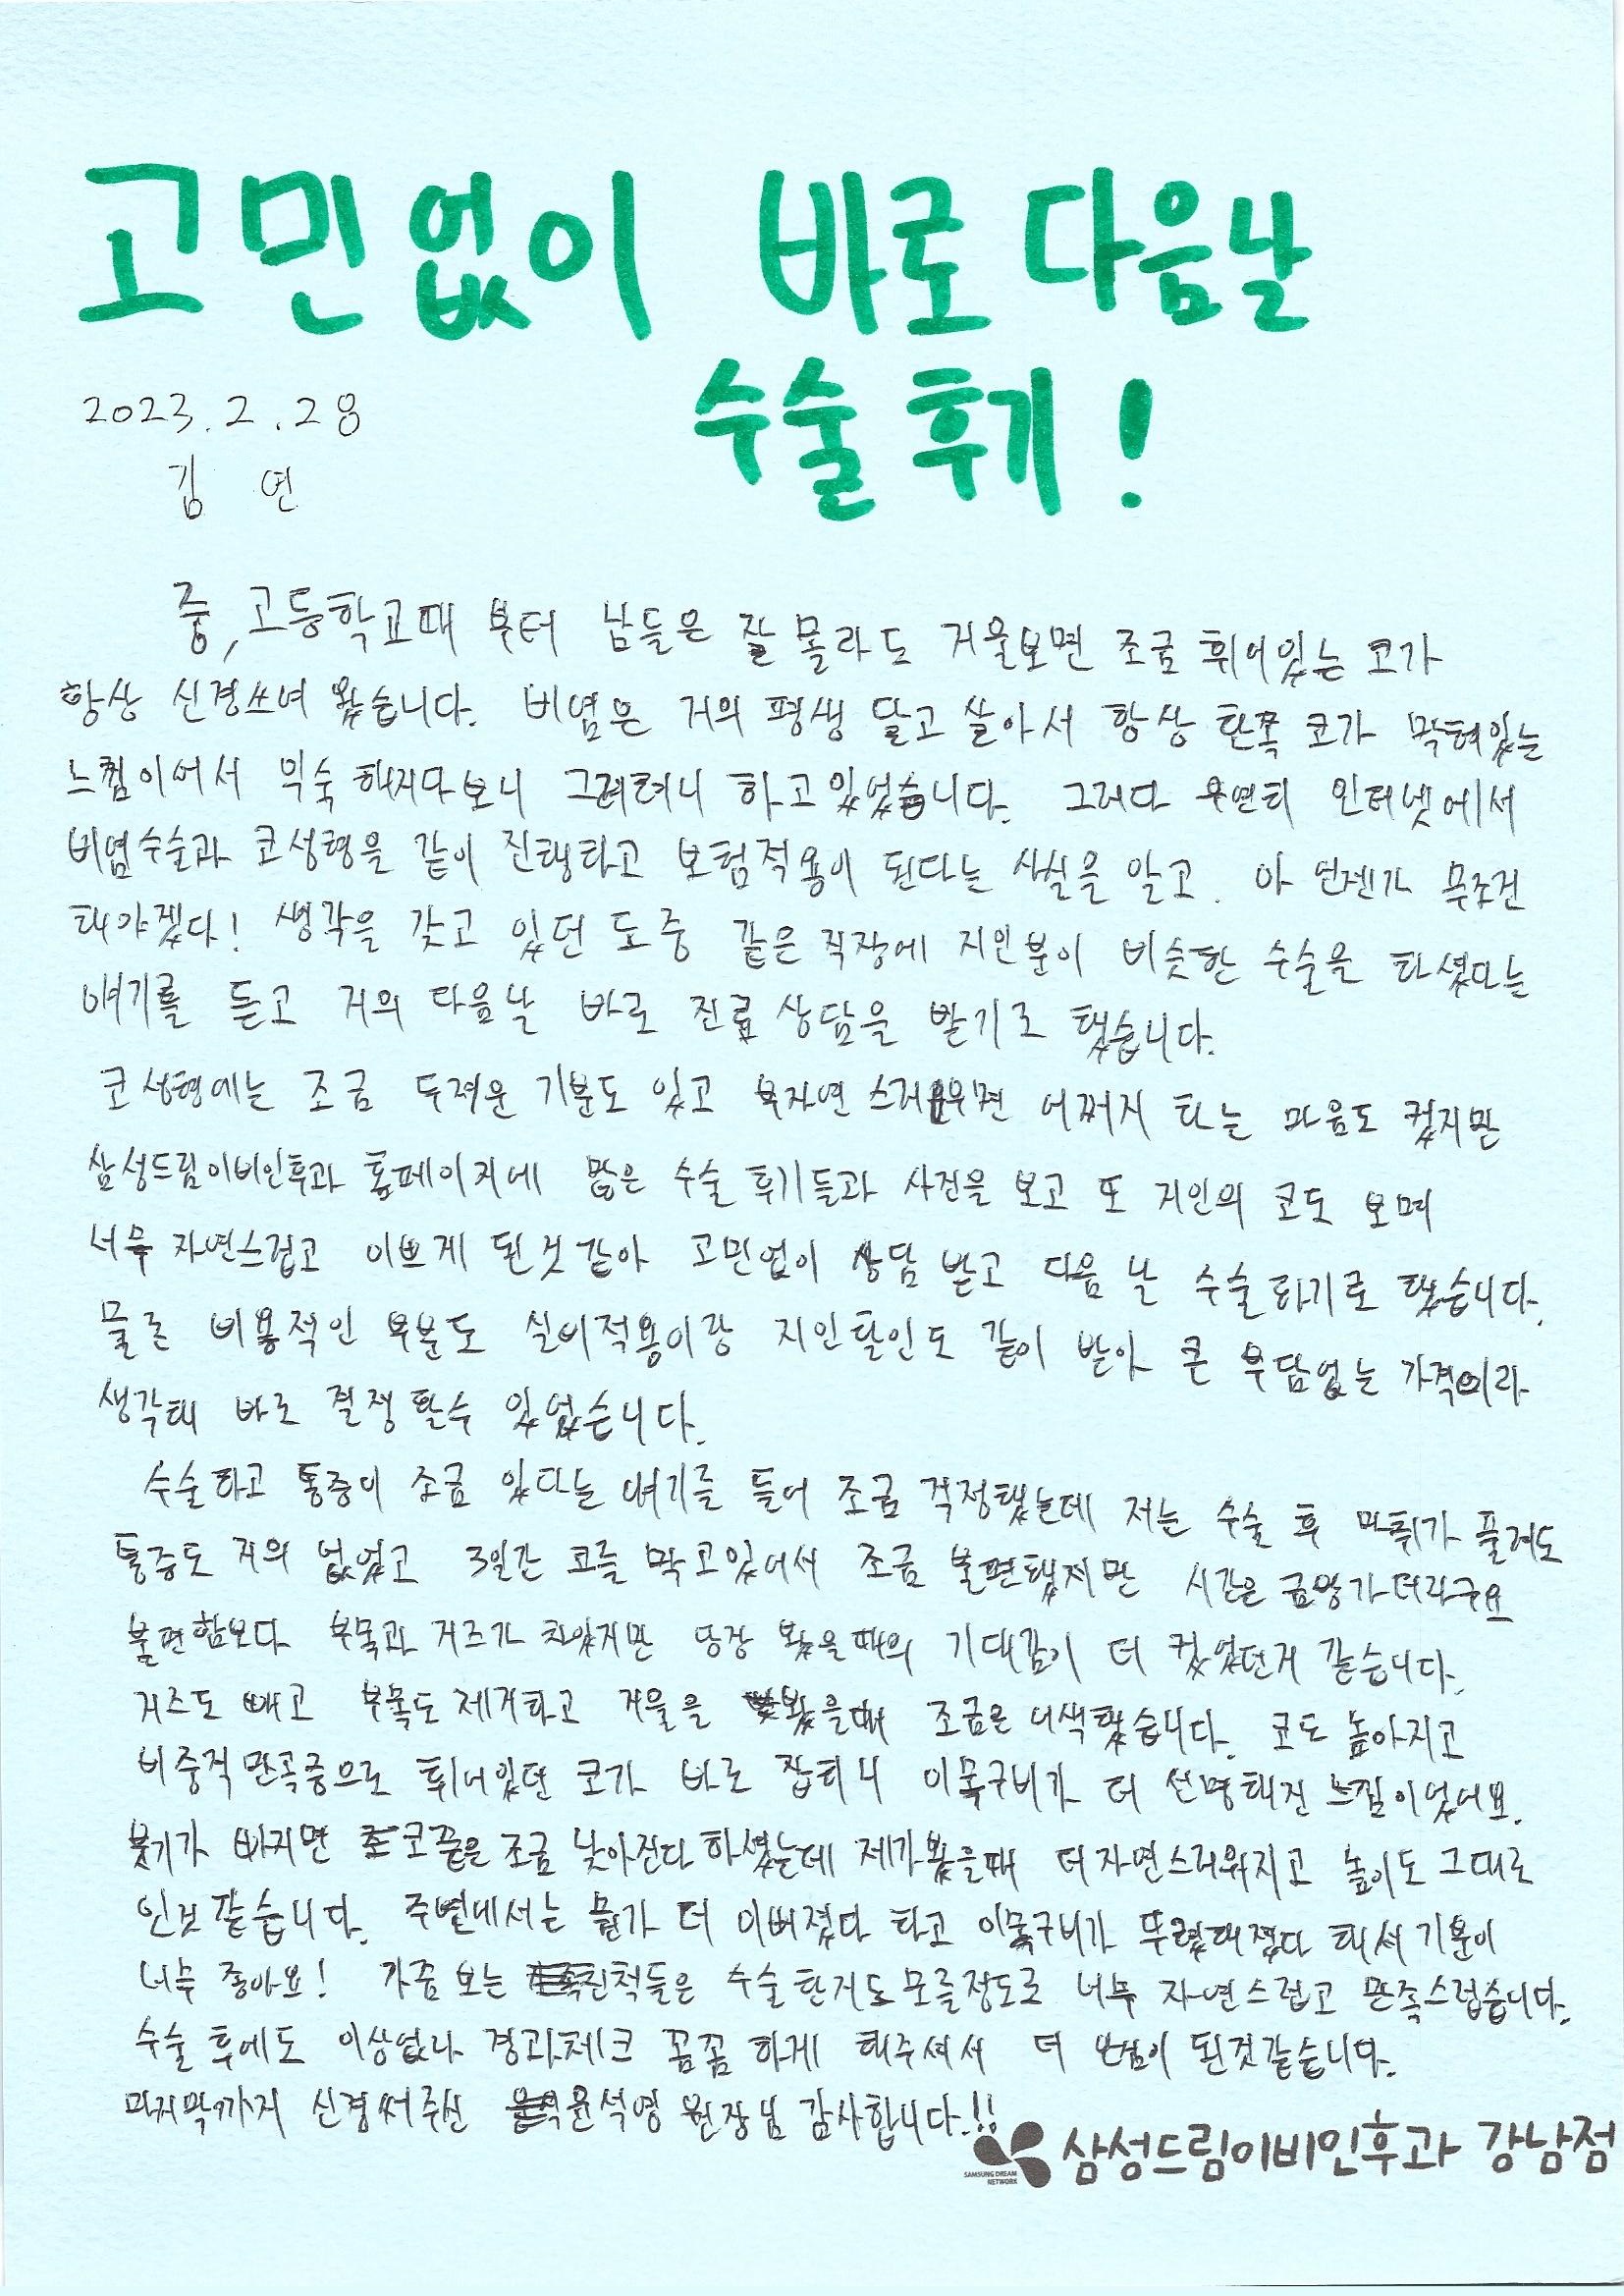 고민없이 바로 다음날
수술 후기!
2023. 2. 28
김 연
중, 고등학교때 부터 남들은 잘 몰라도 거울보면 조금 휘어있는 코가
항상 신경쓰여 왔습니다. 비염은 거의 평생 달고 살아서 항상 한쪽 코가 막혀있는
느낌이어서 익숙해지다보니 그러려니 하고 있었습니다. 그러다 우연히 인터넷에서
비염수술과 코성형을 같이 진행하고 보험적용이 된다는 사실을 알고. 아 언젠가 무조건
해야겠다! 생각을 갖고 있던 도중 같은 직장에 지인분이 비슷한 수술을 하셨다는
얘기를 듣고 거의 다음날 바로 진료 상담을 받기로 했습니다.
코성형에는 조금 두려운 기분도 있고 부자연스러우면 어쩌지 하는 마음도 컸지만
삼성드림이비인후과 홈페이지에 많은 수술 후기들과 사진을 보고 또 지인의 코도 보며
너무 자연스럽고 이쁘게 된것 같아 고민없이 상담 받고 다음 날 수술하기로 했습니다.
물론 비용적인 부분도 실비적용이랑 지인할인도 같이 받아 큰 부담없는 가격이라
생각해 바로 결정 할수 있었습니다.
수술하고 통증이 조금 있다는 얘기를 들어 조금 걱정했는데 저는 수술 후 마취가 풀려도
통증도 거의 없었고 3일간 코를 막고있어서 조금 불편했지만 시간은 금방가더라구요
불편함보다 부목과 거즈가 차있지만 당장 봤을때의 기대감이 더 컸었던거 같습니다.
거즈도 빼고 부목도 제거하고 거울을 봤을때 조금은 어색했습니다. 코도 높아지고
비중격 만곡증으로 휘어있던 코가 바로 잡히니 이목구비가 더 선명해진 느낌이었어요.
붓기가 빠지면 코끝은 조금 낮아진다 하셨는데 제가봤을때 더자연스러워지고 높이도 그대로
인것 같습니다. 주변에서는 뭔가 더 이뻐졌다 하고 이목구비가 뚜렷해졌다 해서 기분이
너무 좋아요! 가끔 보는 친척들은 수술한거도 모를정도로 너무 자연스럽고 만족스럽습니다.
수술 후에도 이상없나 경과체크 꼼꼼 하게 해주셔서 더 안심이 된것같습니다.
마지막까지 신경써주신 윤석영 원장님 감사합니다.!!
SAMSUNG DREAM
NETWORK
삼성드림이비인후과 강남점